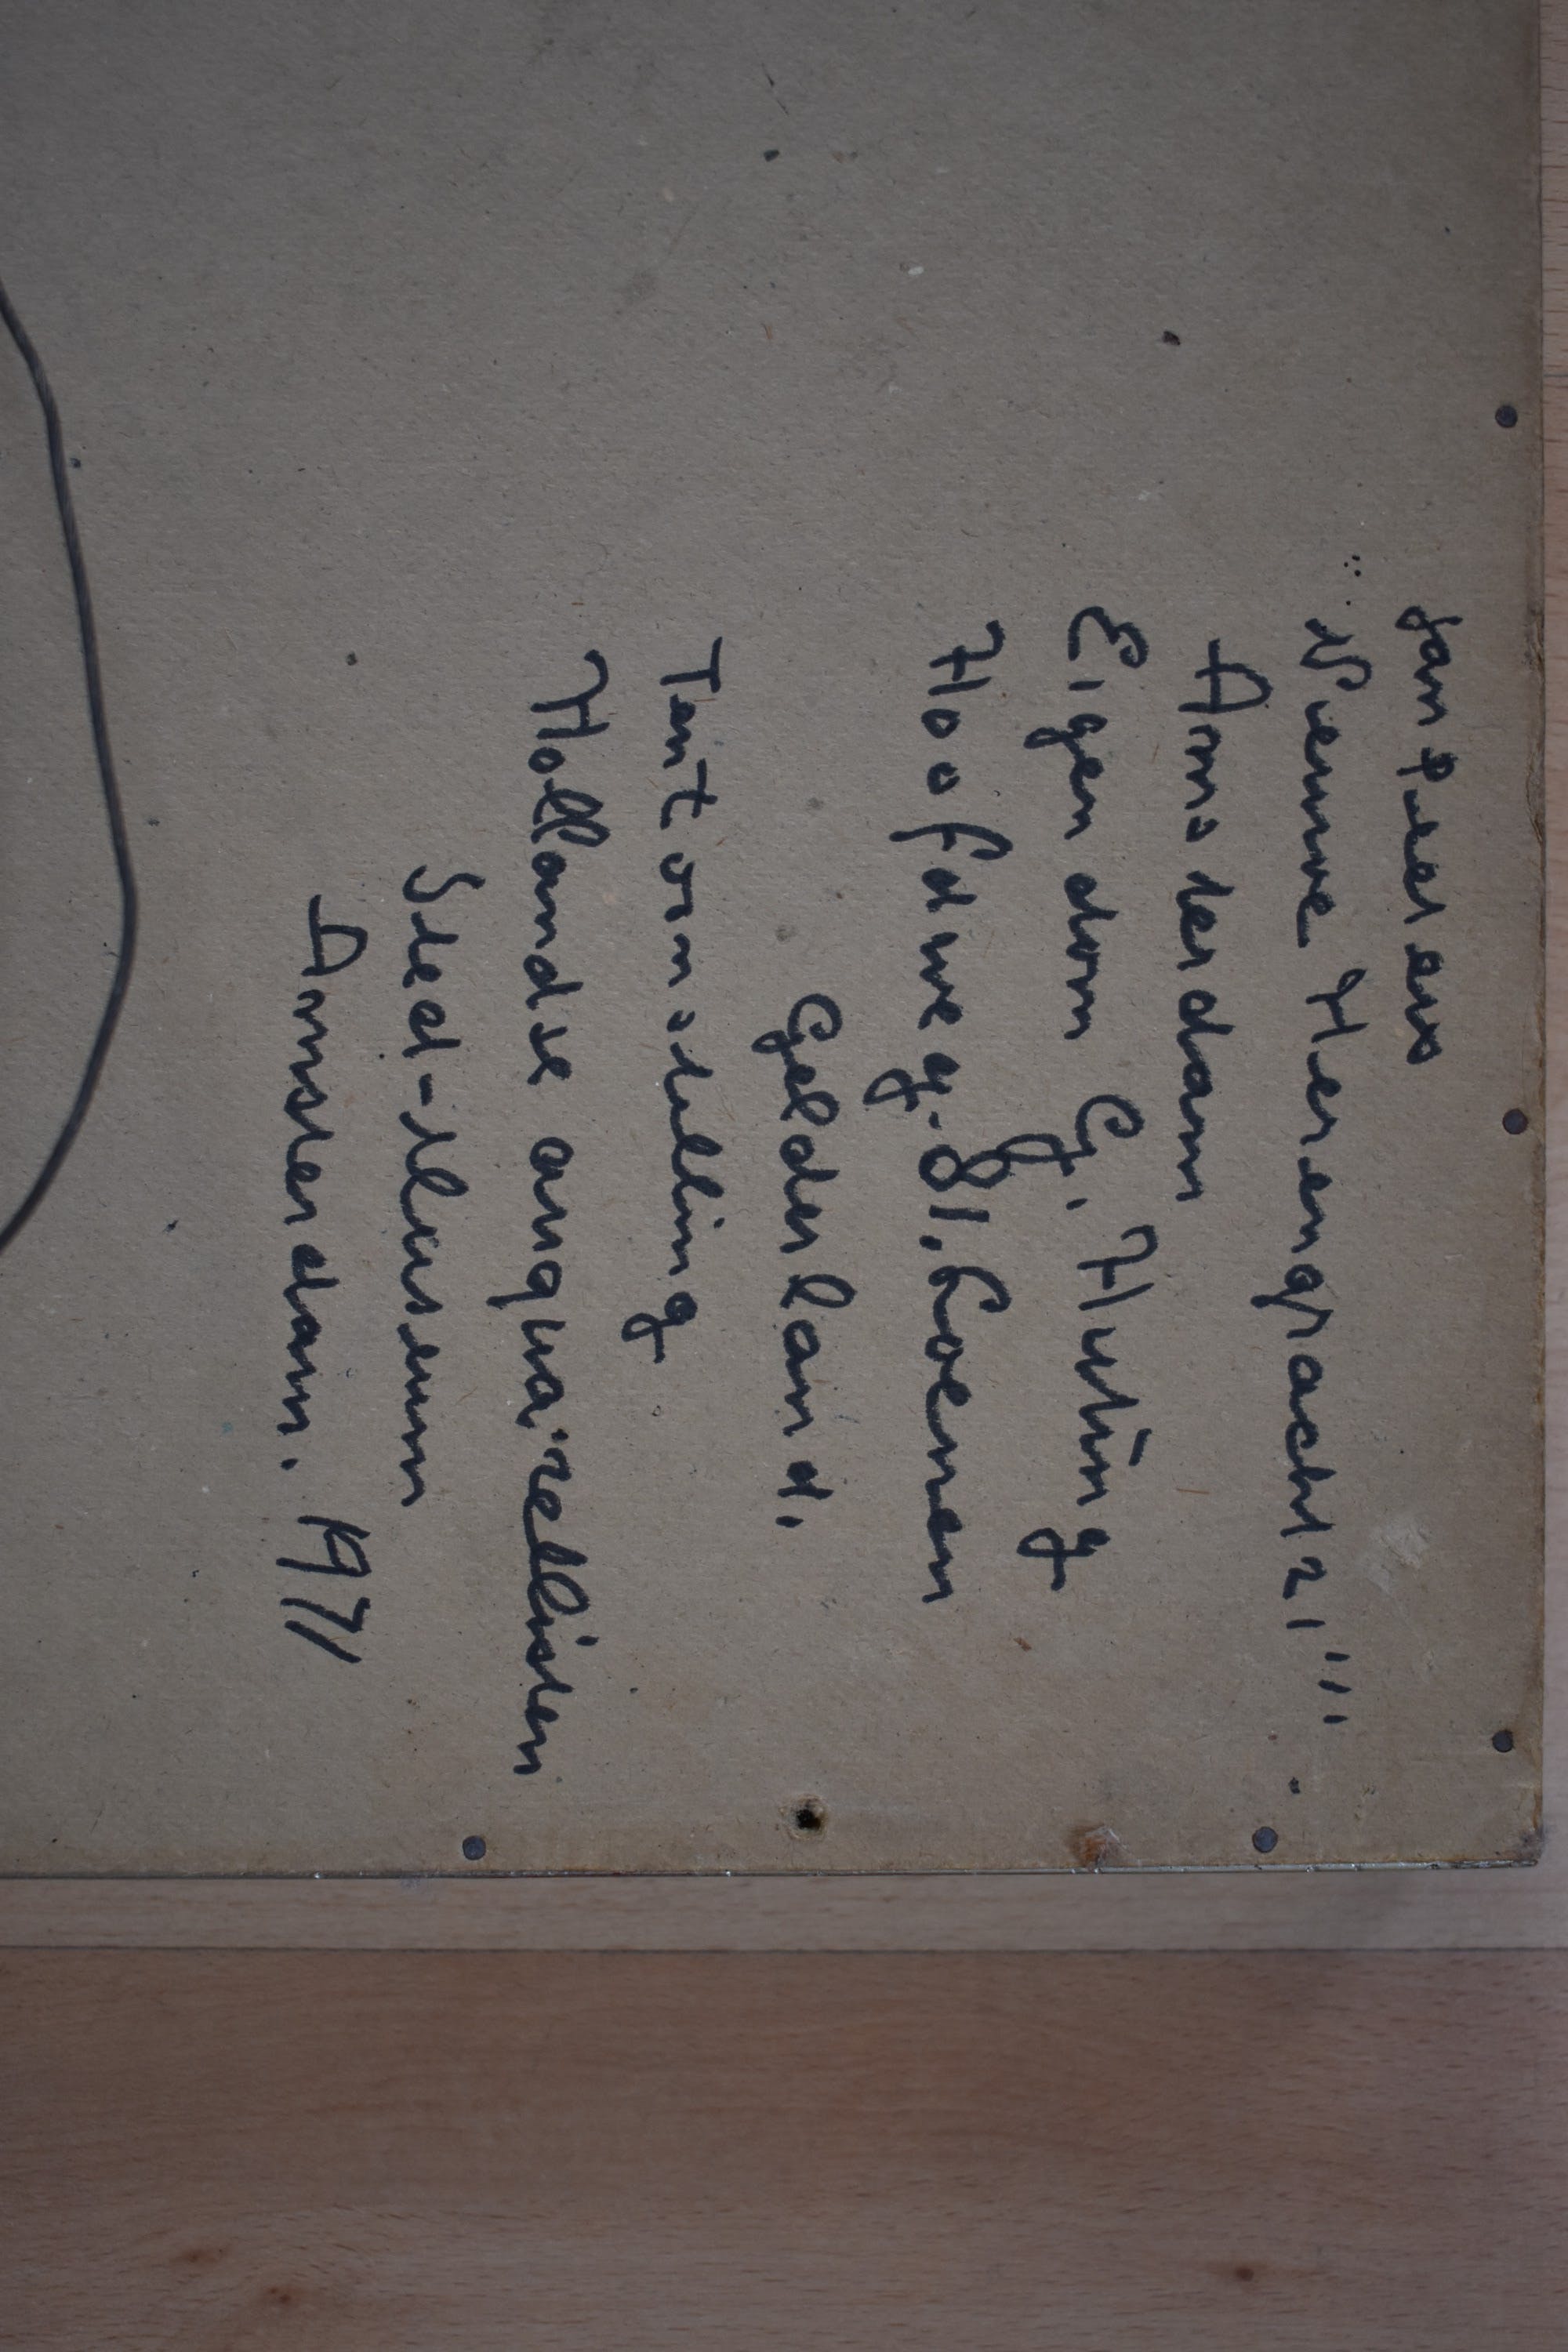 Jan Peeters
Nieuwe Herengracht 21'''
Amsterdam
Eigendom G. Huting
Hoofdweg. 81. Loenen
Gelderland.
Tentoonstelling
Hollandse aquarellisten
Sted-Museum
Amsterdam. 1971